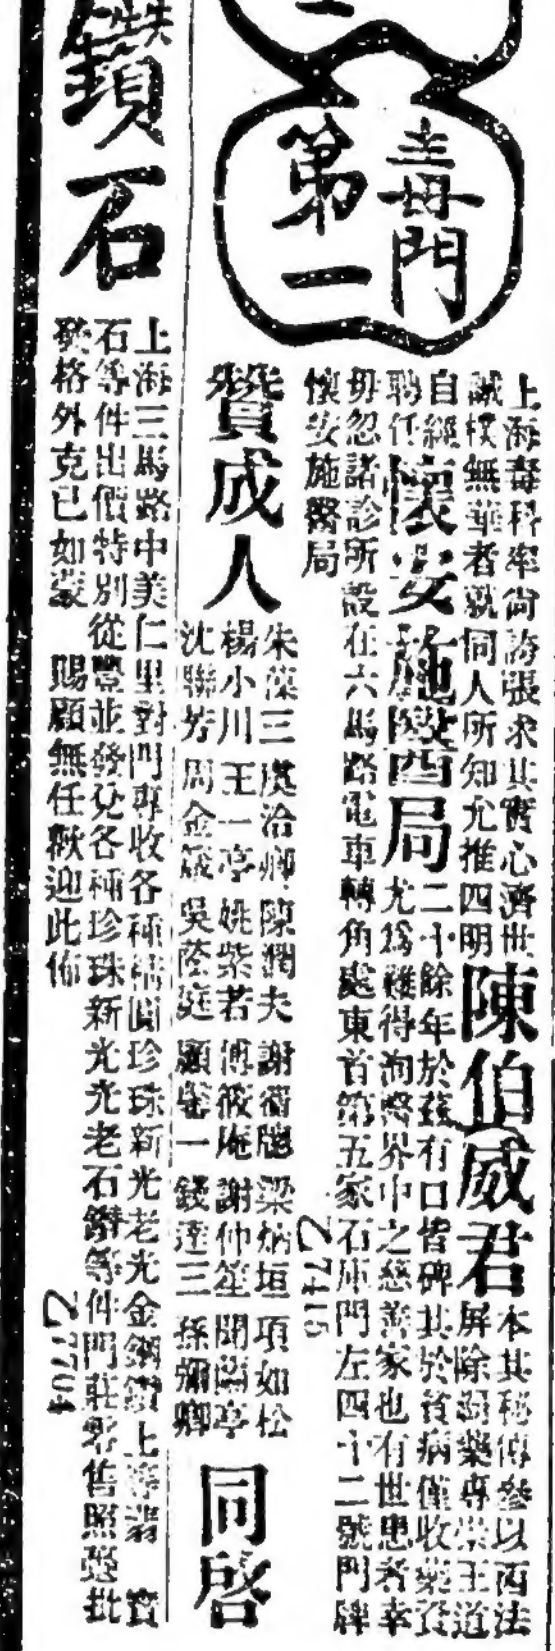 毒門
第一
上海毒科率尚誇張求其實心濟世
誠樸無華者就同人所知尤推四明
陳伯威君
本其秘傳參以西法
屏除弱藥專崇王道
自經
聘任
懷安施醫局
二十餘年於茲有口皆碑其於貧病僅收藥資
尤爲難得洵醫界中之慈善家也有世患者幸
毋忽諸診所設在六馬路電車轉角處東首第五家石庫門左四十二號門牌
懷安施醫局
Z7415
贊成人
朱葆三 虞洽卿 陳潤夫 謝蘅牕 梁炳垣 項如松
楊小川 王一亭 姚紫若 傅筱庵 謝仲笙 聞蘭亭
沈聯芳 周金箴 吳蔭庭 顧馨一 錢達三 孫彌卿
同啓
鑽石
上海三馬路中美仁里對門專收各種精圓珍珠新光老光金鋼鑽上等翡 寶
石等件出價特別從豐並發兌各種珍珠新光光老石鑽等件門莊零售照躉批
發格外克己如蒙 賜顧無任歡迎此佈
Z7704